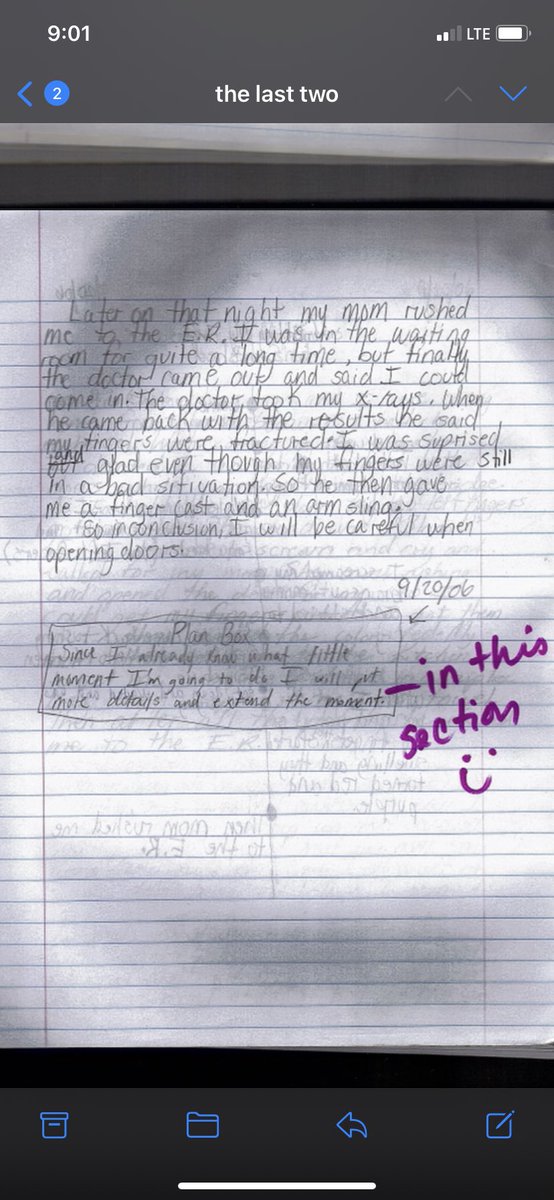 9:01
LTE
2
the last two
Later on that night my mom rushed
me to the E.R. It was in the waiting
room for quite a long time, but finally
the doctor came out and said I could
come in. The doctor took my x-rays. When
he came back with the results he said
my fingers were fractured. I was suprised
and glad even though my fingers were still
in a bad sitivation. So he then gave
me a finger cast and an arm sling.
So in conclusion, I will be careful when
opening doors.
9/20/06
Plan Box
Since I already know what little
moment I'm going to do I will put
more details and extend the moment.
—in this
section